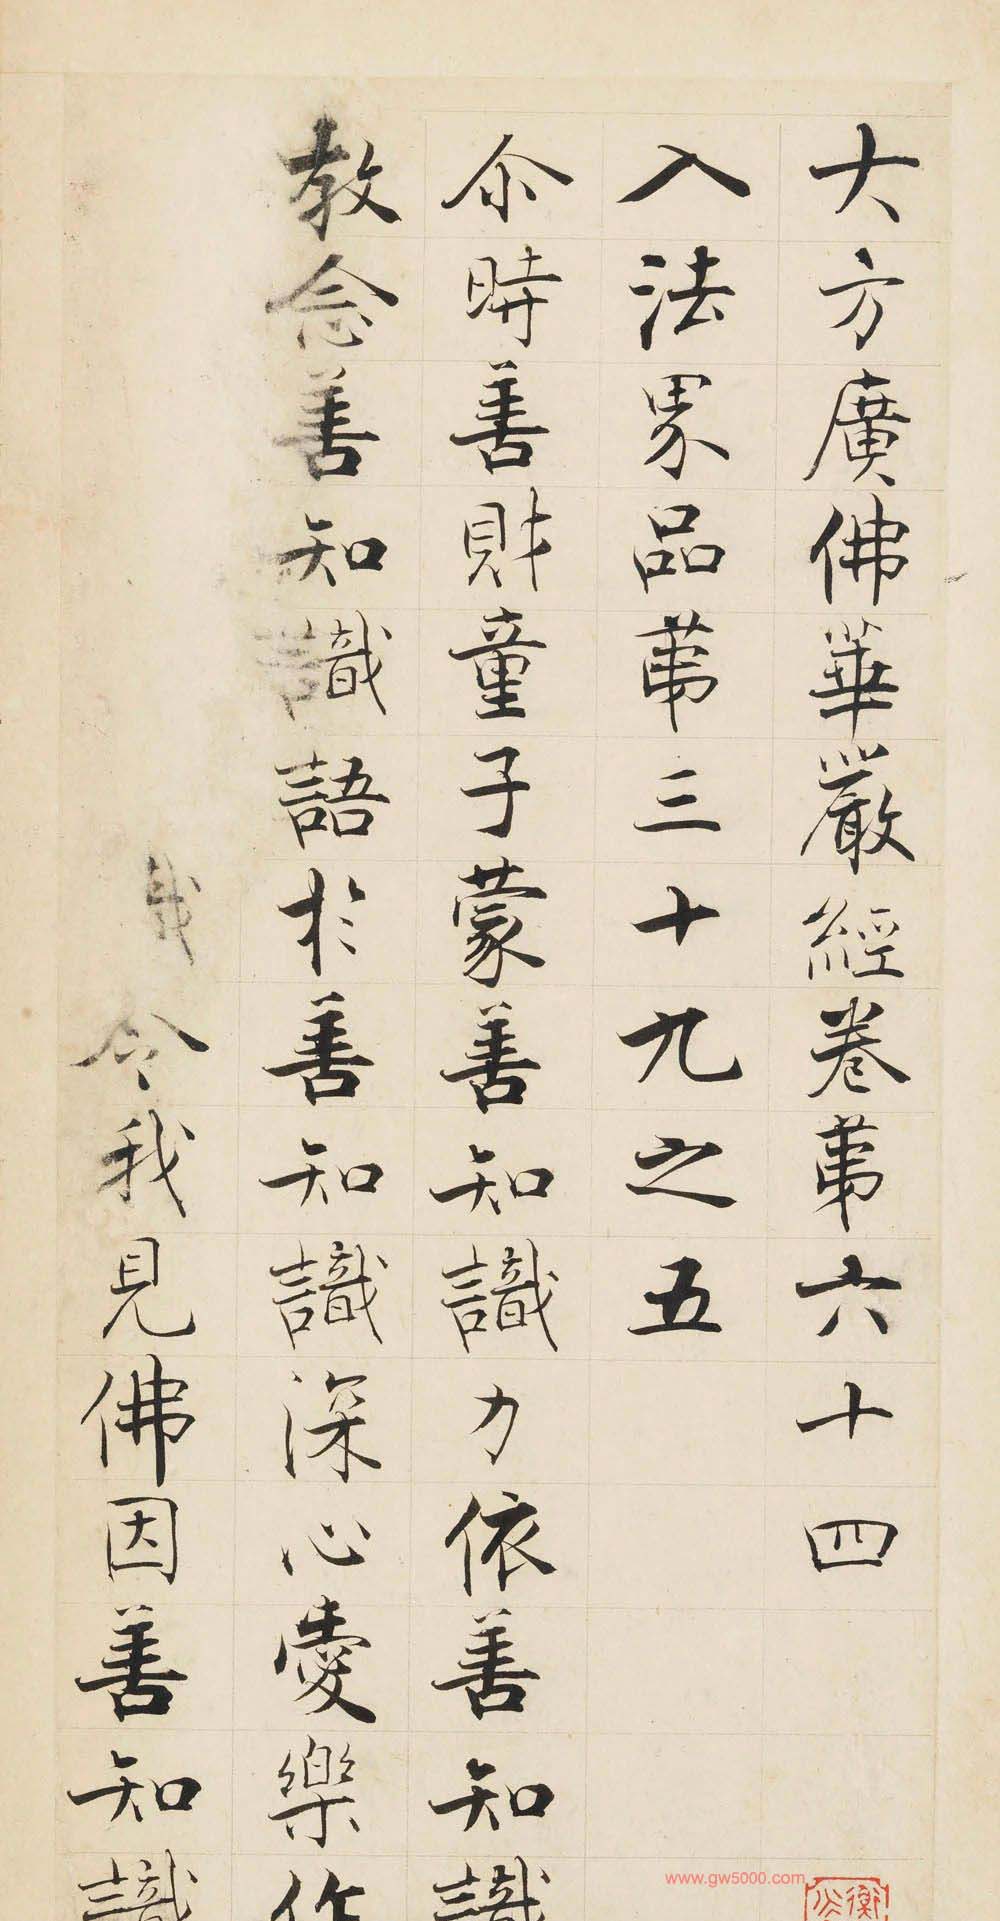 大方廣佛華嚴經卷苐六十四
入法界品苐三十九之五
尒時善財童子蒙善知識力依善知識
教念善知識語於善知識深心愛樂作
令我見佛因善知識
www.gw5000.com